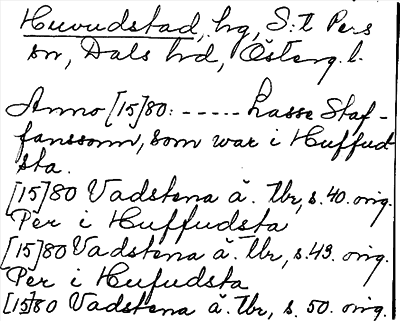 Huvudstad, hg, S:t Pers
sn, Dals hd, Österg. l.
Anno [15]80: ----- Lasse Staf-
fanssonn, som war i Huffud
sta.
[15]80 Vadstena ä. tbr, s. 40. orig.
Per i Huffudsta
[15]80 Vadstena ä. tbr, s. 49. orig.
Per i Hufudsta
[15]80 Vadstena ä. tbr, s. 50. orig.